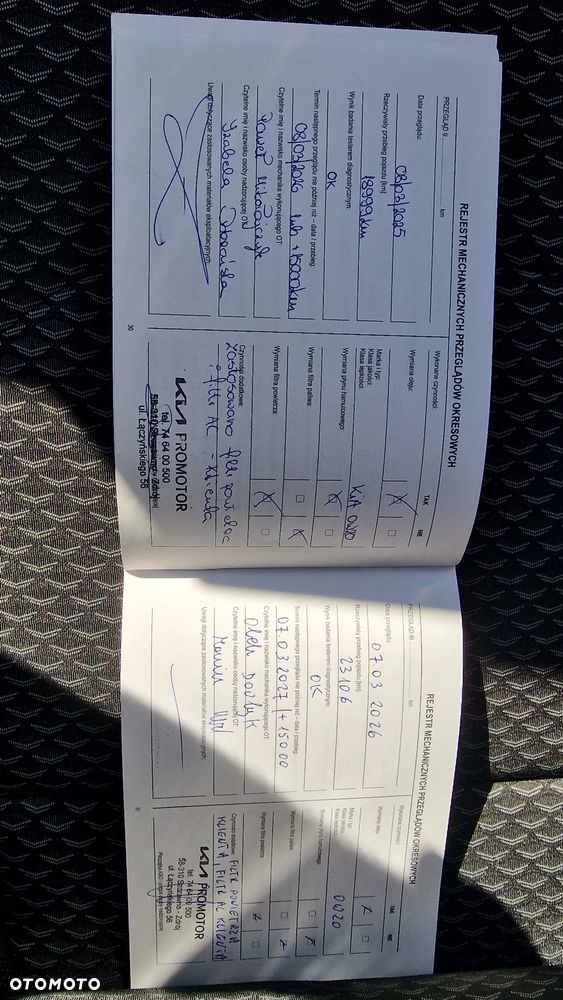 REJESTR MECHANICZNYCH PRZEGLĄDÓW OKRESOWYCH
PRZEGLĄD II
km
Data przeglądu:
08/03/2025
Rzeczywisty przebieg pojazdu [km]:
18999 km
Wynik badania testerem diagnostycznym:
OK
Termin następnego przeglądu nie później niż – data / przebieg:
08/03/2026 lub +15000km
Czytelne imię i nazwisko mechanika wykonującego OT:
Paweł
Czytelne imię i nazwisko osoby nadzorującej OT:
Izabela
Uwagi dotyczące zastosowanych materiałów eksploatacyjnych:
30
Wykonane czynności:
TAK
NIE
Wymiana oleju:
Marka i typ:
Klasa jakości:
Klasa lepkości:
KIA 0W20
Wymiana płynu hamulcowego:
Wymiana filtra paliwa:
Wymiana filtra powietrza:
Czynności dodatkowe:
zastosowano filtr pow. dec
i filtr AC - klienta
KIA PROMOTOR
tel. 74 64 00 500
58-310 Szczawno - Zdrój
ul. Łączyńskiego 56
REJESTR MECHANICZNYCH PRZEGLĄDÓW OKRESOWYCH
PRZEGLĄD III
km
Data przeglądu:
07.03.2026
Rzeczywisty przebieg pojazdu [km]:
23106
Wynik badania testerem diagnostycznym:
OK
Termin następnego przeglądu nie później niż – data / przebieg:
07.03.2027/+15000
Czytelne imię i nazwisko mechanika wykonującego OT:
Czytelne imię i nazwisko osoby nadzorującej OT:
Marcin
Uwagi dotyczące zastosowanych materiałów eksploatacyjnych:
31
Wykonane czynności:
TAK
NIE
Wymiana oleju:
Marka i typ:
Klasa jakości:
Klasa lepkości:
0W20
Wymiana płynu hamulcowego:
Wymiana filtra paliwa:
Wymiana filtra powietrza:
Czynności dodatkowe:
FILTR POWIETRZA
KLIENTA FILTR AC KLIENTA
KIA PROMOTOR
tel. 74 64 00 500
58-310 Szczawno - Zdrój
ul. Łączyńskiego 56
OTOMOTO